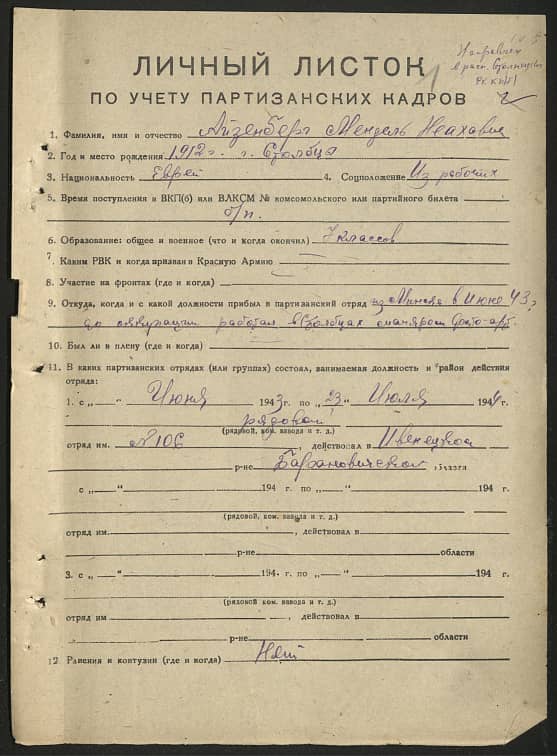 Направлен
в расп. Столпецк
РК КП(б)
ЛИЧНЫЙ ЛИСТОК
ПО УЧЕТУ ПАРТИЗАНСКИХ КАДРОВ
1. Фамилия, имя и отчество Айзенберг Мендель Неахович
2. Год и место рождения 1912 г. г. Столбцы
3. Национальность Еврей 4. Соцположение Из рабочих
5. Время поступления в ВКП(б) или ВЛКСМ № комсомольского или партийного билета
б/п.
6. Образование: общее и военное (что и когда окончил) 7 классов
7. Каким РВК и когда призван в Красную Армию
8. Участие на фронтах (где и когда)
9. Откуда, когда и с какой должности прибыл в партизанский отряд из Минска в Июне 43 г
до оккупации работал в Столбцах маляром
10. Был ли в плену (где и когда)
11. В каких партизанских отрядах (или группах) состоял, занимаемая должность и район действия
отряда:
1. с „ “ Июня 1943 г. по „23“ Июля 1944 г.
рядовой
(рядовой, ком. взвода и т. д.)
отряд им. №106, действовал в Ивенецком
р-не Барановической области
с „ “ 194 г. по „ “ 194 г.
(рядовой, ком. взвода и т. д.)
отряд им. , действовал в
р-не области
3. с „ “ 194 г. по „ “ 194 г.
(рядовой ком. взвода и т. д.)
отряд им , действовал в
р-не области
12 Ранения и контузии (где и когда) Нет